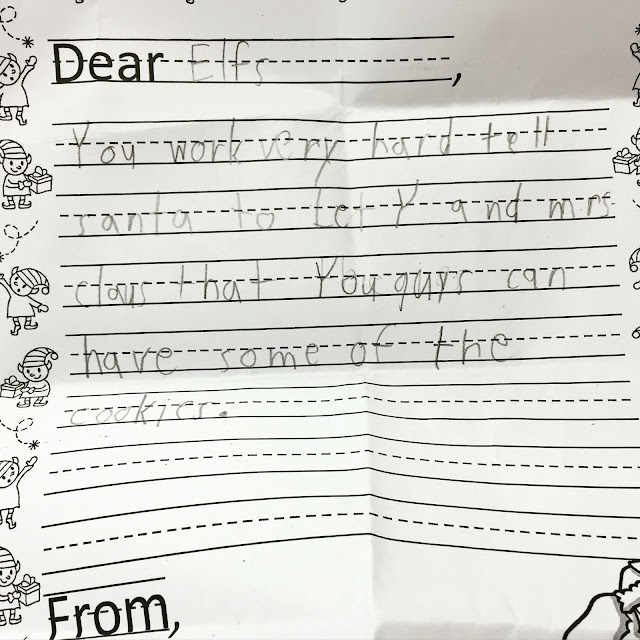 Dear Elfs,
You work very hard tell
santa to Let Y and mrs
claus that You guys can
have some of the
cookies.
From,